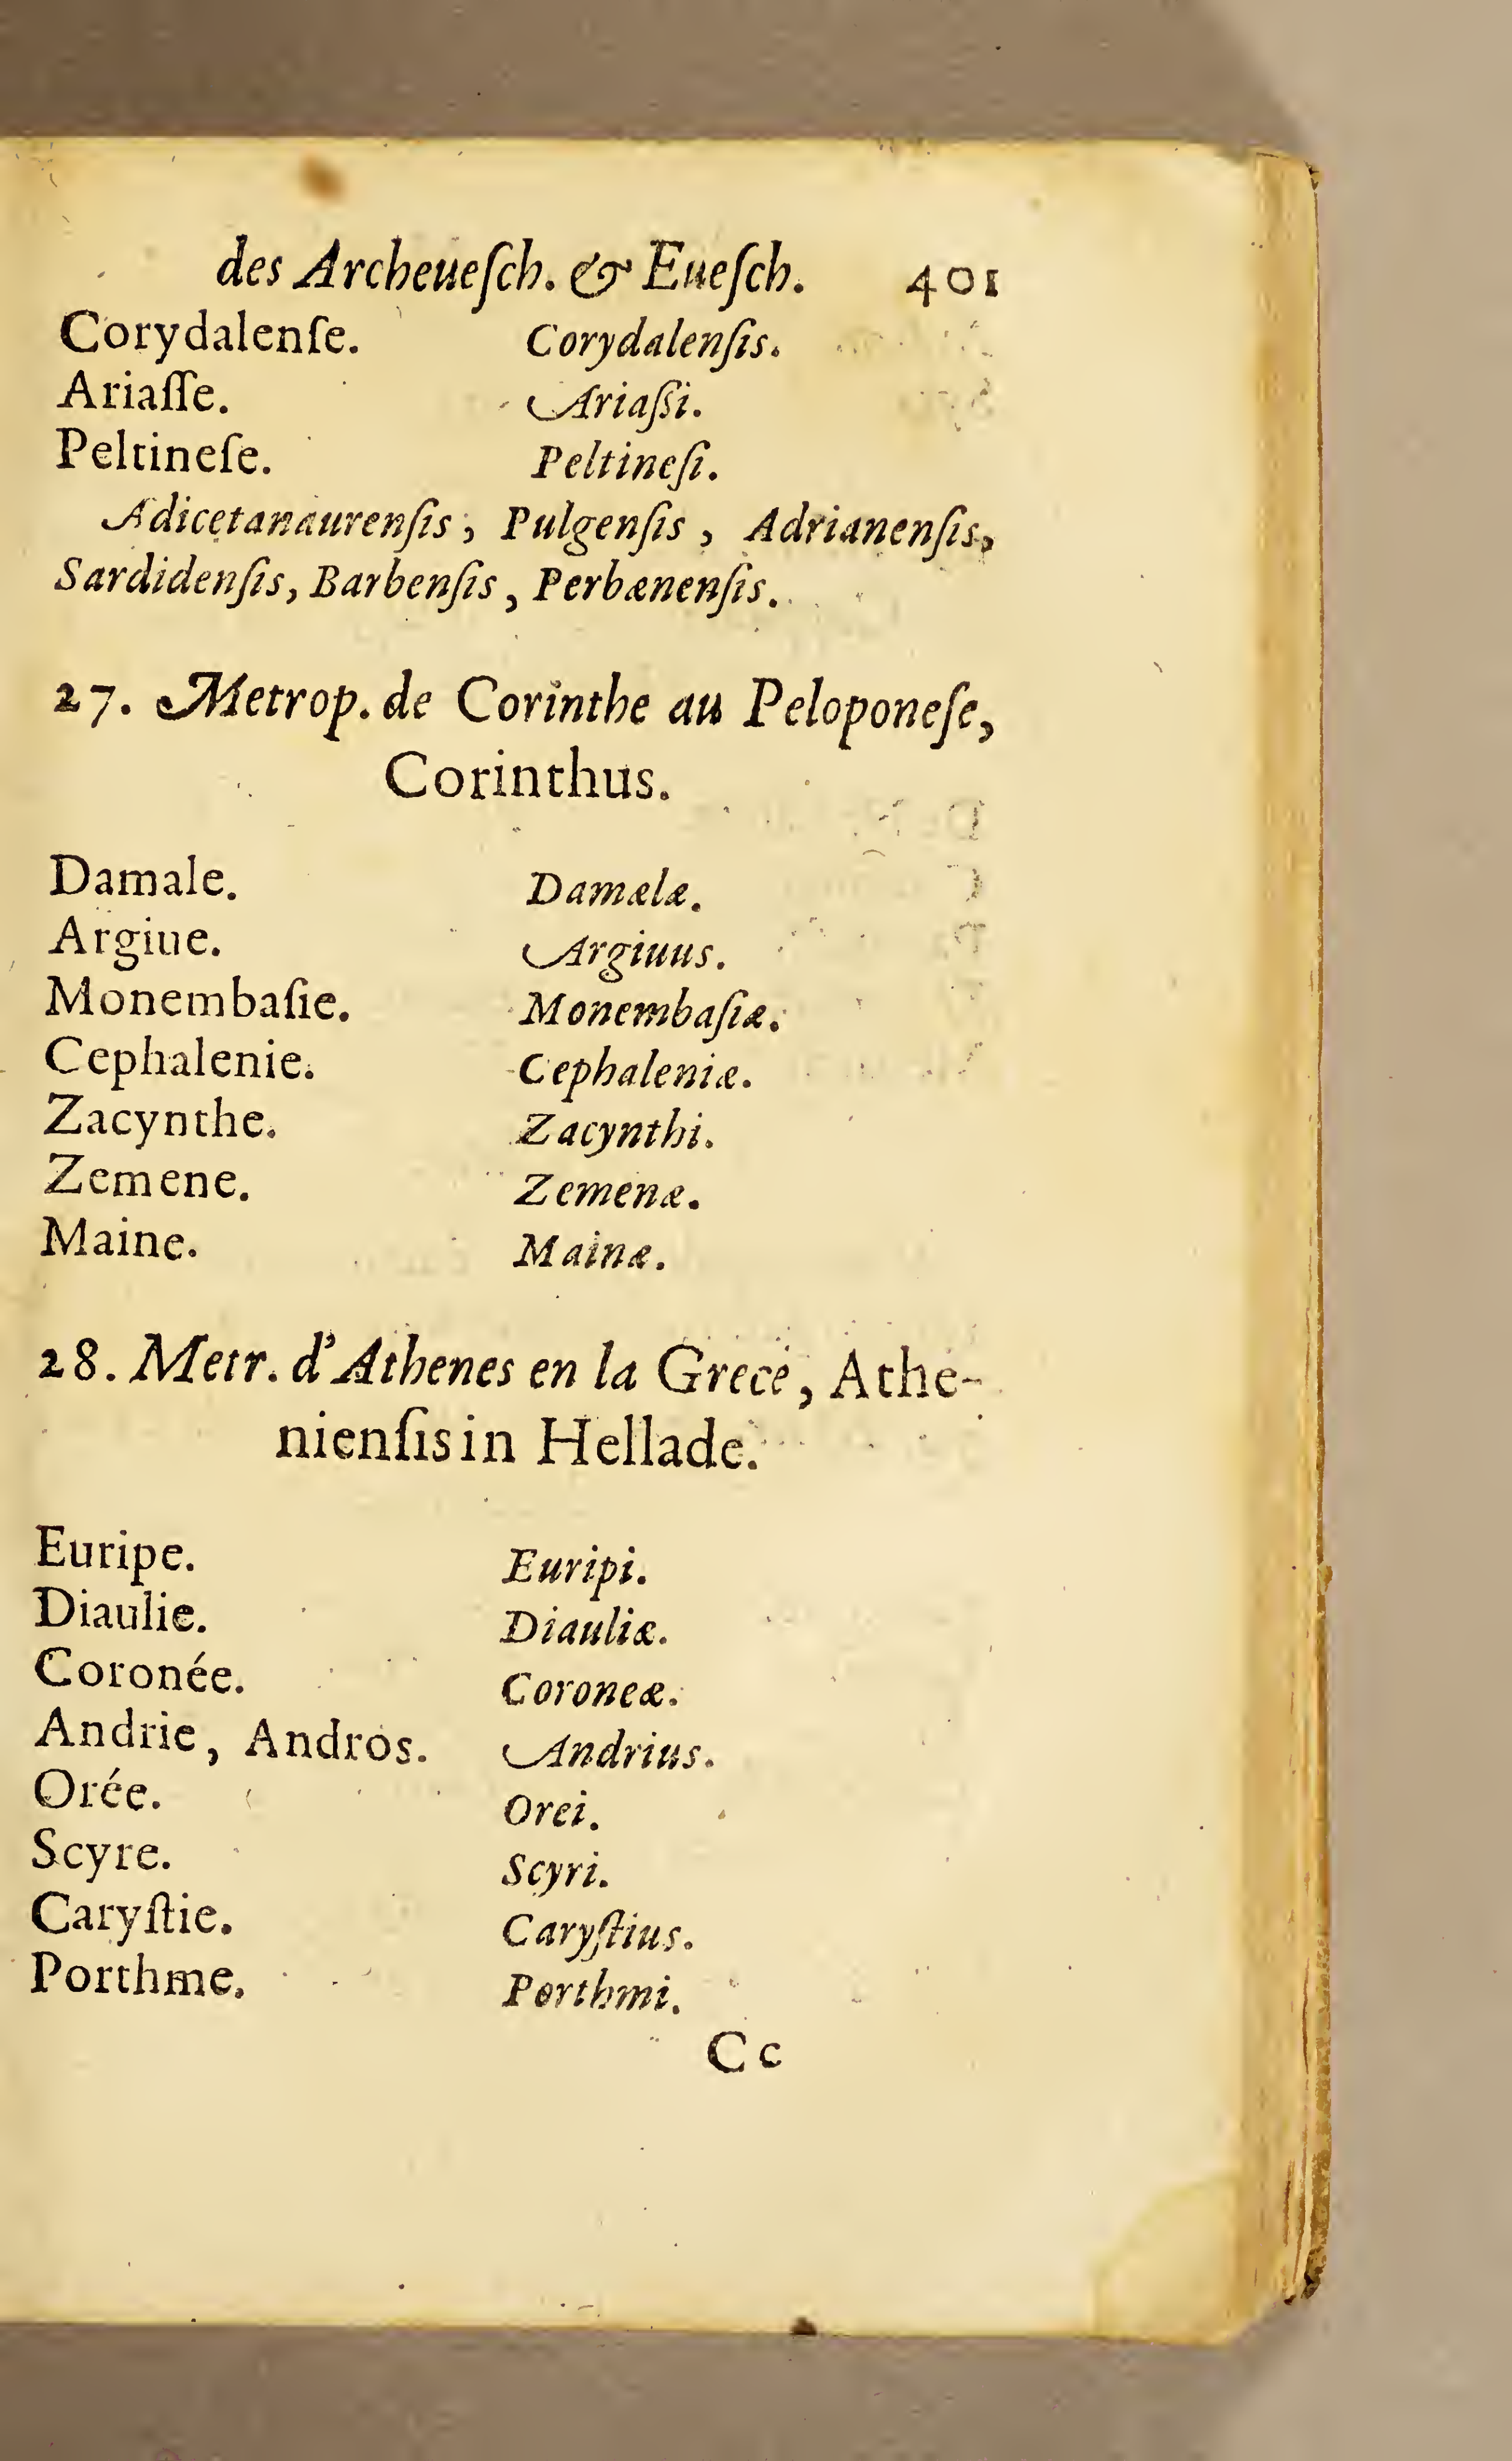 des Archeueſch. & Eueſch. 401
Corydalenſe. Corydalenſis.
Ariaſſe. Ariaſsi.
Peltineſe. Peltineſi.
Adicetanaurenſis, Pulgenſis, Adrianenſis,
Sardidenſis, Barbenſis, Perbænenſis.
27. Metrop. de Corinthe au Peloponeſe,
Corinthus.
Damale. Damælæ.
Argiue. Argiuus.
Monembaſie. Monembaſiæ.
Cephalenie. Cephaleniæ.
Zacynthe. Zacynthi.
Zemene. Zemenæ.
Maine. Mainæ.
28. Metr. d'Athenes en la Grece, Athe-
nienſis in Hellade.
Euripe. Euripi.
Diaulie. Diauliæ.
Coronée. Coroneæ.
Andrie, Andros. Andrius.
Orée. Orei.
Scyre. Scyri.
Caryſtie. Caryſtius.
Porthme. Porthmi.
Cc